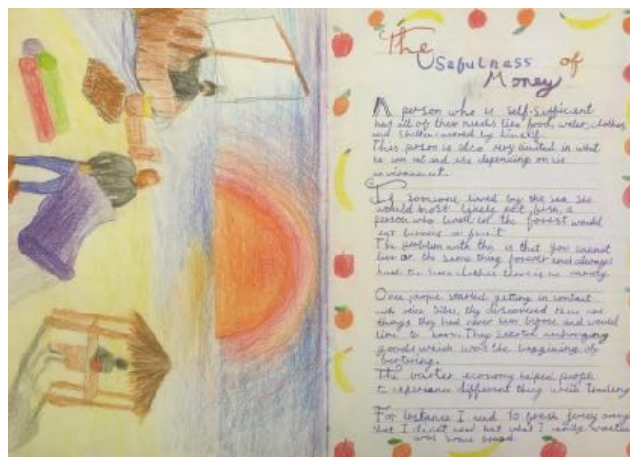 The
Usefulness of
Money
A person who is self-sufficient
has all of their needs like food, water, clothes,
and shelter covered by himself.
This person is also very limited in what
he can eat and use depending on his
environment.
If someone lived by the sea she
would most likely eat fish, a
person who lived in the forest would
eat berries or fruit.
The problem with this is that you cannot
live of the same thing forever and always
have the same clothes there is no variety
Once people started getting in contact
with other tribes, they discovered there are
things they had never seen before and would
like to have. They started exchanging
goods which was the beggining of
bartering.
The barter economy helped people
to experience different thing while trading
For instance I had 10 fresh juicy oranges
that I didnt need but what I really wanted
was some bread.